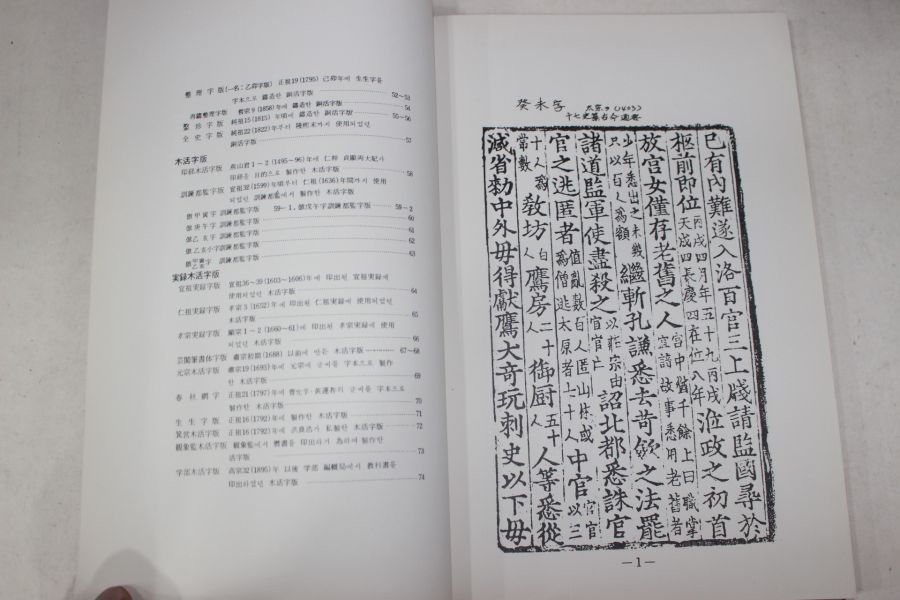 整理字版(一名：乙卯字版) 正祖19(1795) 己卯年에 生生字를
字本으로 鑄造한 銅活字版 52~53
再鑄整理字版 哲宗9(1858)年에 鑄造한 銅活字版 54
純祖15(1815)年頃에 鑄造한 銅活字版 55~56
全史字版 純祖22(1822)年부터 隆熙末까지 使用되었던
銅活字版 57
木活字版
印經木活字版 燕山君1~2(1495~96)年에 仁粹 貞顯両大妃가
印經을 目的으로 製作한 木活字版 58
訓鍊都監字版 宣祖32(1599)年頃부터 仁祖(1636)年間까지 使用
되었던 訓鍊都監에서 製作한 木活字版
倣甲寅字 訓鍊都監字版 59~1, 倣戊午字訓鍊都監字版 59~2
倣庚午字 訓鍊都監字版 60
倣乙亥字 訓鍊都監字版 61
倣乙亥小字訓鍊都監字版 62
訓鍊都監字版 63
実録木活字版
宣祖実録字版 宣祖36~39(1603~1606)年에 印出된 宣祖実録에
使用되었던 木活字版 64
仁祖実録字版 孝宗3(1652)年에 印出된 仁祖実録에 使用되었던
木活字版 65
孝宗実録字版 顯宗1~2(1660~61)에 印出된 孝宗実録에 使用
되었던 木活字版 66
芸閣筆書体字版 肅宗初期(1688) 以前에 만든 木活字版 67~68
元宗木活字版 肅宗19(1693)年에 元宗에 글씨를 字本으로 製作
한 木活字版 69
春秋綱字 正祖21(1797)年에 曺允亨·黃運祚의 글씨를 字本으로
製作한 木活字版 70
生生字版 正祖16(1792)年에 製作한 木活字版 71
箕営木活字版 正祖16(1792)年에 洪良浩가 私製한 木活字版 72
観象監木活字版 観象監에서 暦書를 印出하기 為하여 製作한
活字版 73
学部木活字版 高宗32(1895)年 以後 学部 編輯局에서 教科書를
印出하였던 木活字版 74
癸未字 太宗3(1403)
十七史纂古今通要
已有內難遂入洛百官三上牋請監國尋於
柩前即位丙戌四月年五十九丙戌天成四長慶四在位八年涖政之初首
放宮女僅存老舊之人宮中惟千餘上曰職掌宜諳故事悉用老舊者
少年悉出之未幾只以百人為額繼斬孔謙悉去苛斂之法罷
諸道監軍使盡殺之以莊宗由宦官亡詔北都悉誅宦
官之逃匿者值亂數百人匿山林或為僧逃太原者七十人中官宦官以三
十人為常數教坊百人鷹房二十人御厨五十人人等悉從
減省勑中外毋得獻鷹犬奇玩刺史以下毋
—1—